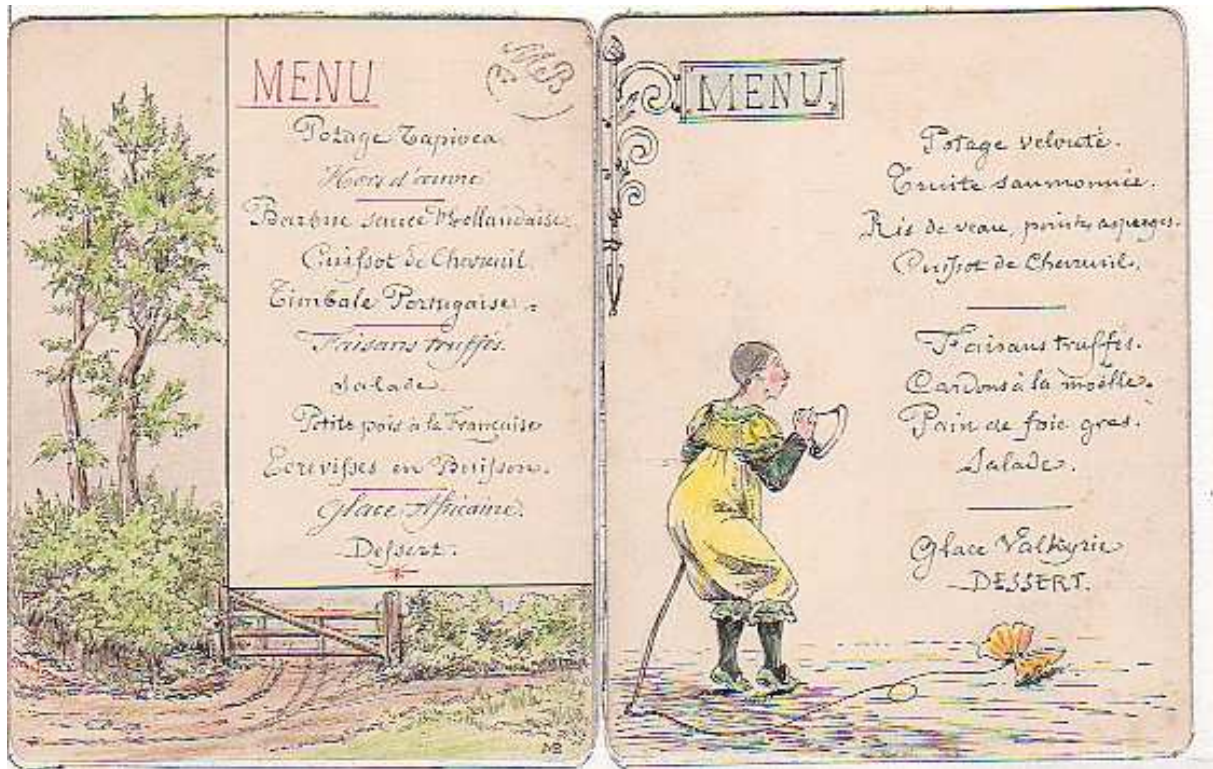 MENU
MB
Potage Tapioca
Hors d'œuvre
Barbue sauce Hollandaise.
Cuissot de Chevreuil.
Timbale Portugaise.
Faisans truffés.
Salade.
Petits pois à la Française
Ecrevisses en Buisson.
Glace Africaine.
Dessert.
MB
MENU.
Potage velouté.
Truite saumonnée.
Ris de veau, pointes asperges.
Cuissot de Chevreuil.
Faisans truffés.
Cardons à la moëlle.
Pain de foie gras.
Salade.
Glace Valkyrie
DESSERT.